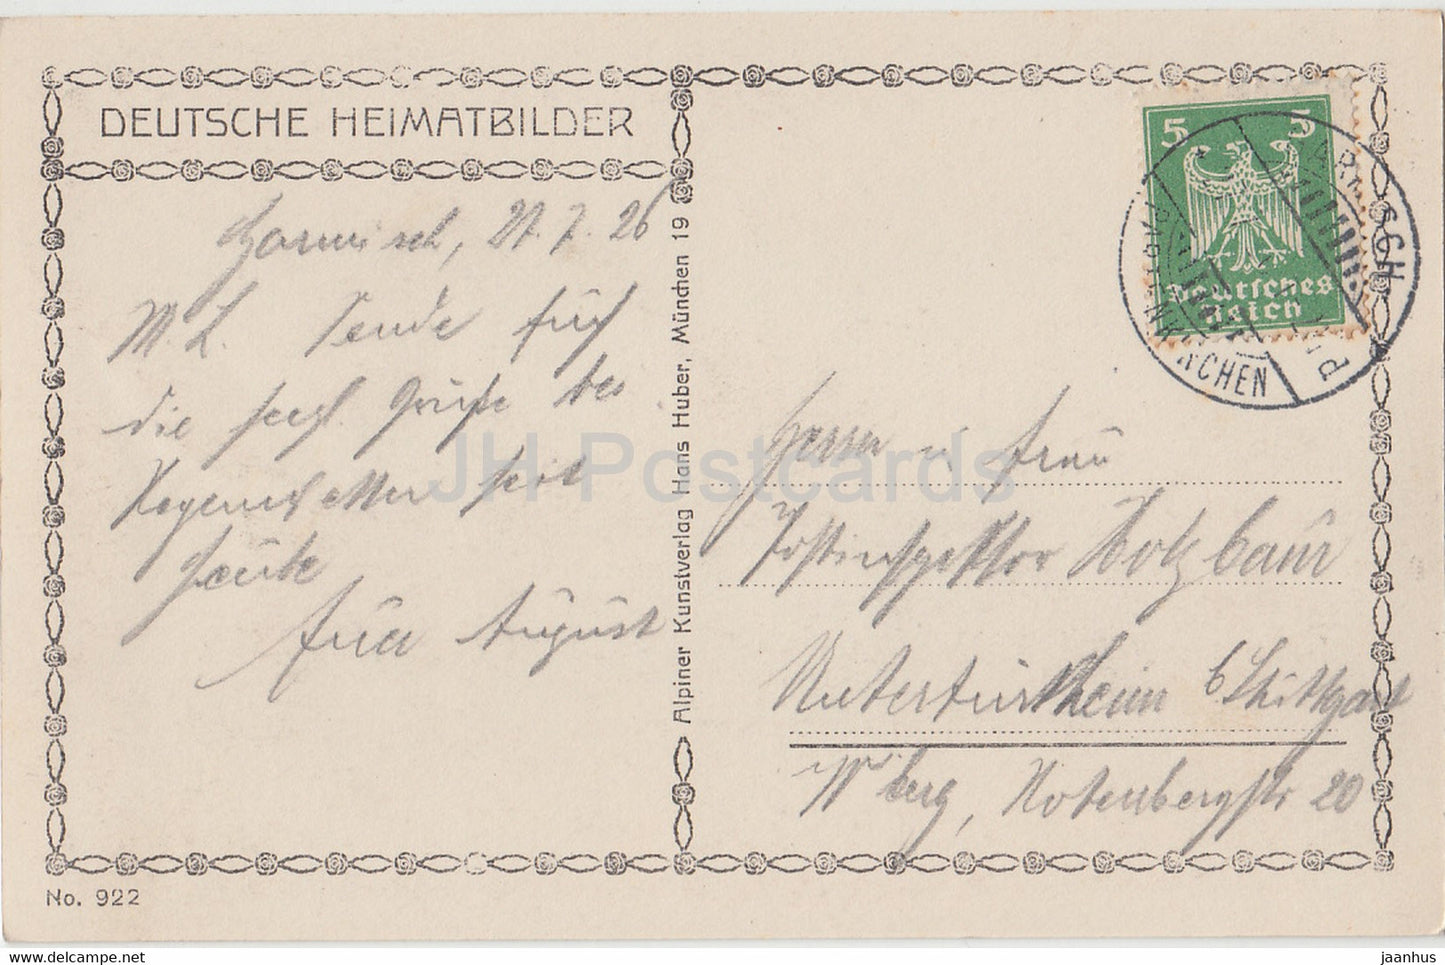 DEUTSCHE HEIMATBILDER
Garmisch, 27.7.26
M. L. Sende Euch
die herzl. Grüße
Regenwetter seit
heute
Euer August
Alpiner Kunstverlag Hans Huber, München 19
No. 922
5 5
Deutsches
Reich
GARMISCH
PARTENKIRCHEN
Herrn u. Frau
Postinspektor Holzbaur
Untertürkheim b/Stuttgart
Wttberg, Rotenbergstr 20
JH Postcards
hippostcard.com
jaanhus